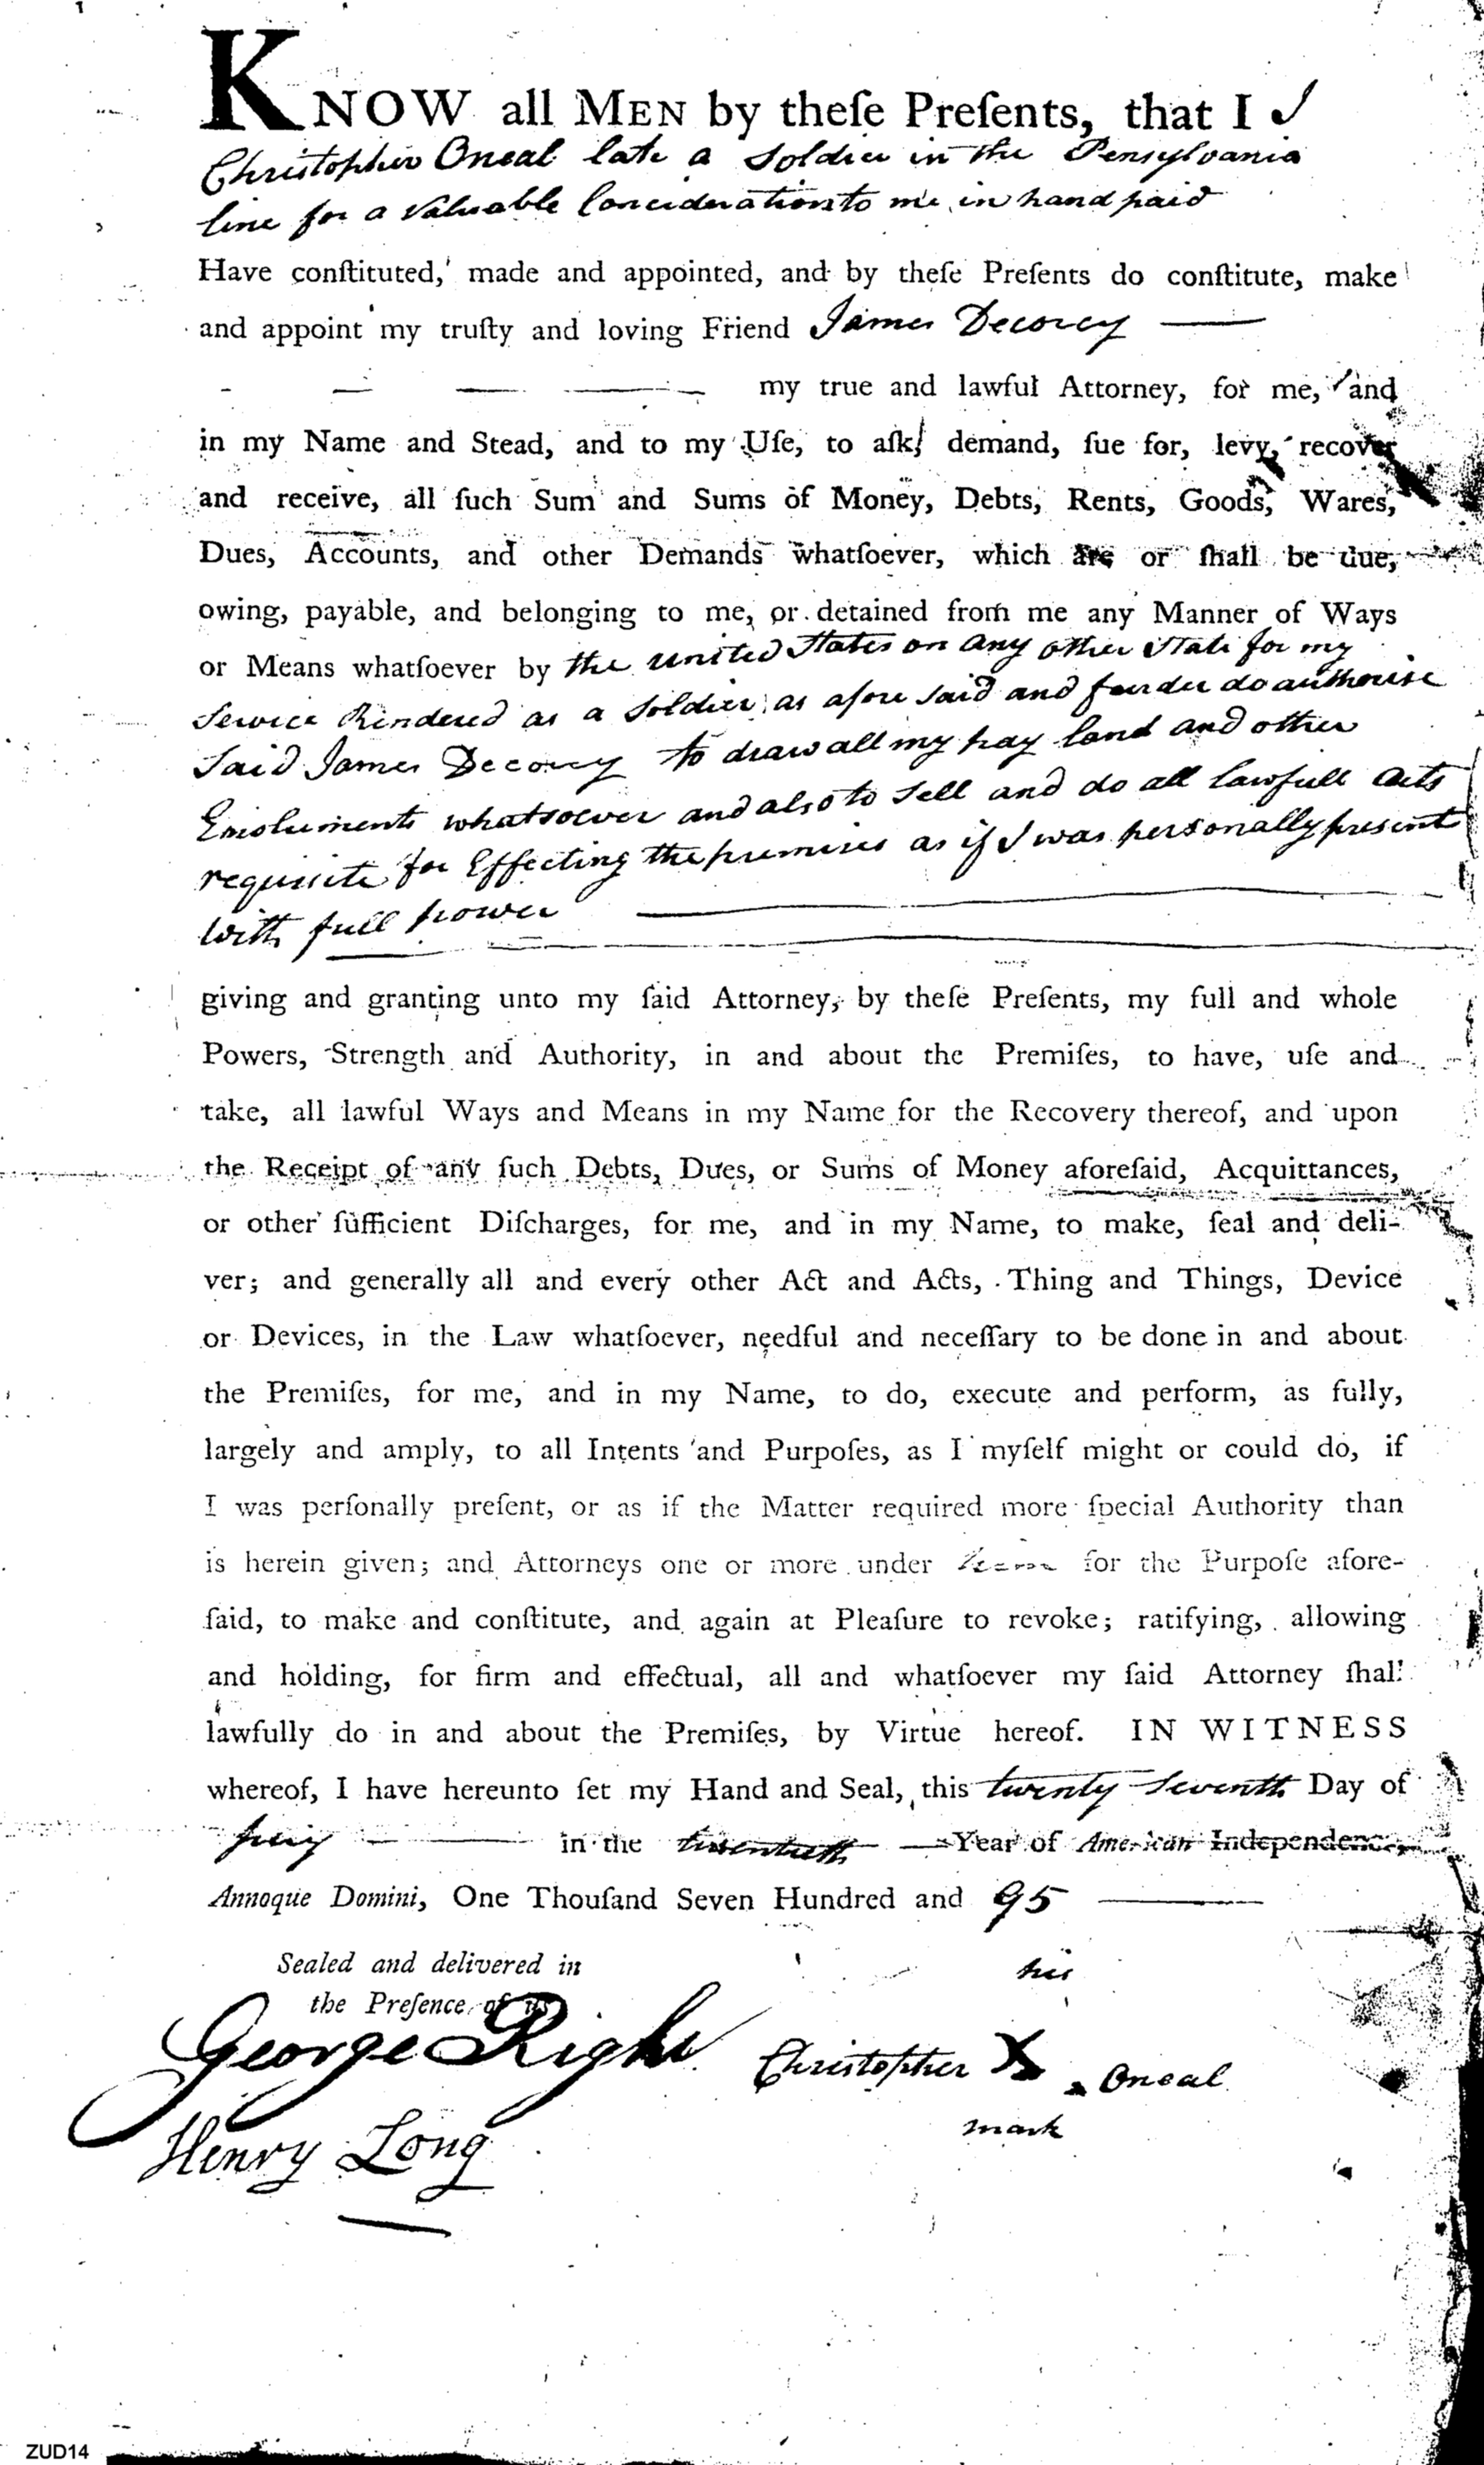 KNOW all MEN by theſe Preſents, that I
Christopher Oneal late a Soldier in the Pensylvania
line for a Valuable Concideration to me in hand paid
Have conſtituted, made and appointed, and by theſe Preſents do conſtitute, make
and appoint my truſty and loving Friend James Decorcy
my true and lawful Attorney, for me, and
in my Name and Stead, and to my Uſe, to aſk, demand, ſue for, levy, recover
and receive, all ſuch Sum and Sums of Money, Debts, Rents, Goods, Wares,
Dues, Accounts, and other Demands whatſoever, which are or ſhall be due,
owing, payable, and belonging to me, or detained from me any Manner of Ways
or Means whatſoever by the united States or any other State for my
Service Rendered as a Soldier as afore said and furder do authorise
Said James Decorcy to draw all my pay land and other
Emoluments whatsoever and also to Sell and do all lawfull acts
requisite for Effecting the premises as if I was personally present
with full power
giving and granting unto my ſaid Attorney, by theſe Preſents, my full and whole
Powers, Strength and Authority, in and about the Premiſes, to have, uſe and
take, all lawful Ways and Means in my Name for the Recovery thereof, and upon
the Receipt of any ſuch Debts, Dues, or Sums of Money aforeſaid, Acquittances,
or other ſufficient Diſcharges, for me, and in my Name, to make, ſeal and deli-
ver; and generally all and every other Act and Acts, Thing and Things, Device
or Devices, in the Law whatſoever, needful and neceſſary to be done in and about
the Premiſes, for me, and in my Name, to do, execute and perform, as fully,
largely and amply, to all Intents and Purpoſes, as I myſelf might or could do, if
I was perſonally preſent, or as if the Matter required more ſpecial Authority than
is herein given; and Attorneys one or more under for the Purpoſe afore-
ſaid, to make and conſtitute, and again at Pleaſure to revoke; ratifying, allowing
and holding, for firm and effectual, all and whatſoever my ſaid Attorney ſhall
lawfully do in and about the Premiſes, by Virtue hereof. IN WITNESS
whereof, I have hereunto ſet my Hand and Seal, this twenty Seventh Day of
in the twentieth Year of American Independence,
Annoque Domini, One Thouſand Seven Hundred and 95
Sealed and delivered in
the Preſence of us
his
George Righ
Christopher X Oneal
mark
Henry Long
ZUD14